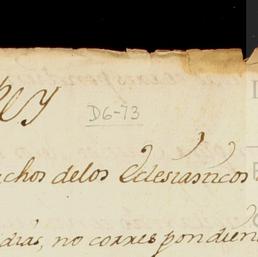 Rey
D6-73
chos delos Eclesiasticos
dias, no correspondien